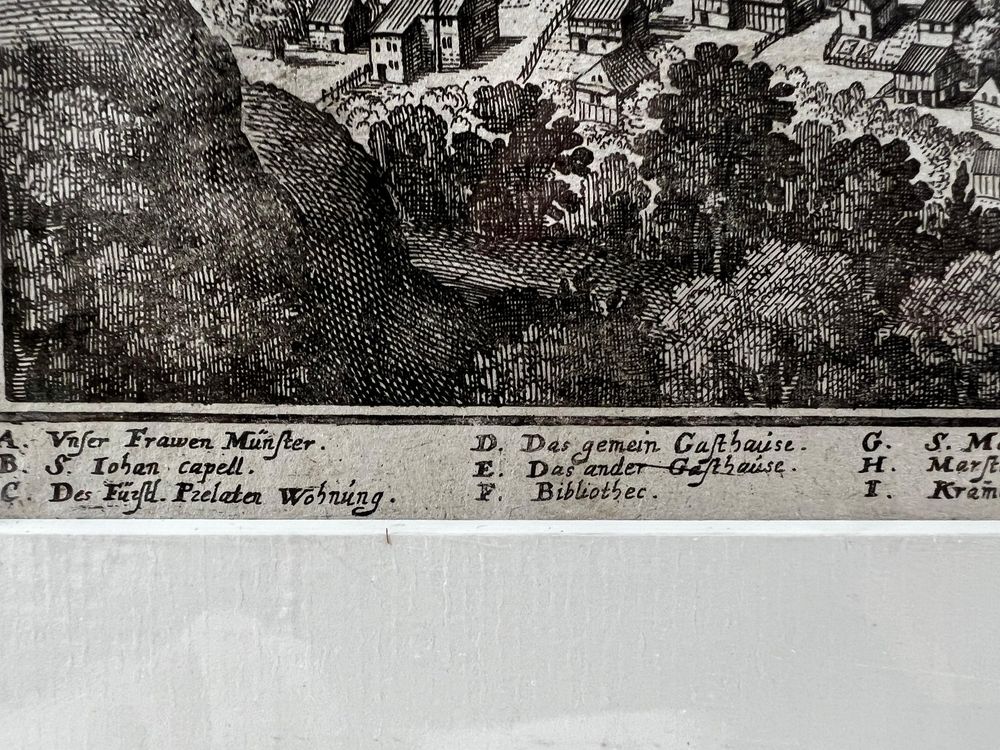 A. Vnser Frawen Münster.
B. S. Iohan capell.
C. Des Fürstl. Prelaten Wohnúng.
D. Das gemein Gasthause.
E. Das ander Gasthause.
F. Bibliothec.
G. S. M
H. Marst
I. Kram